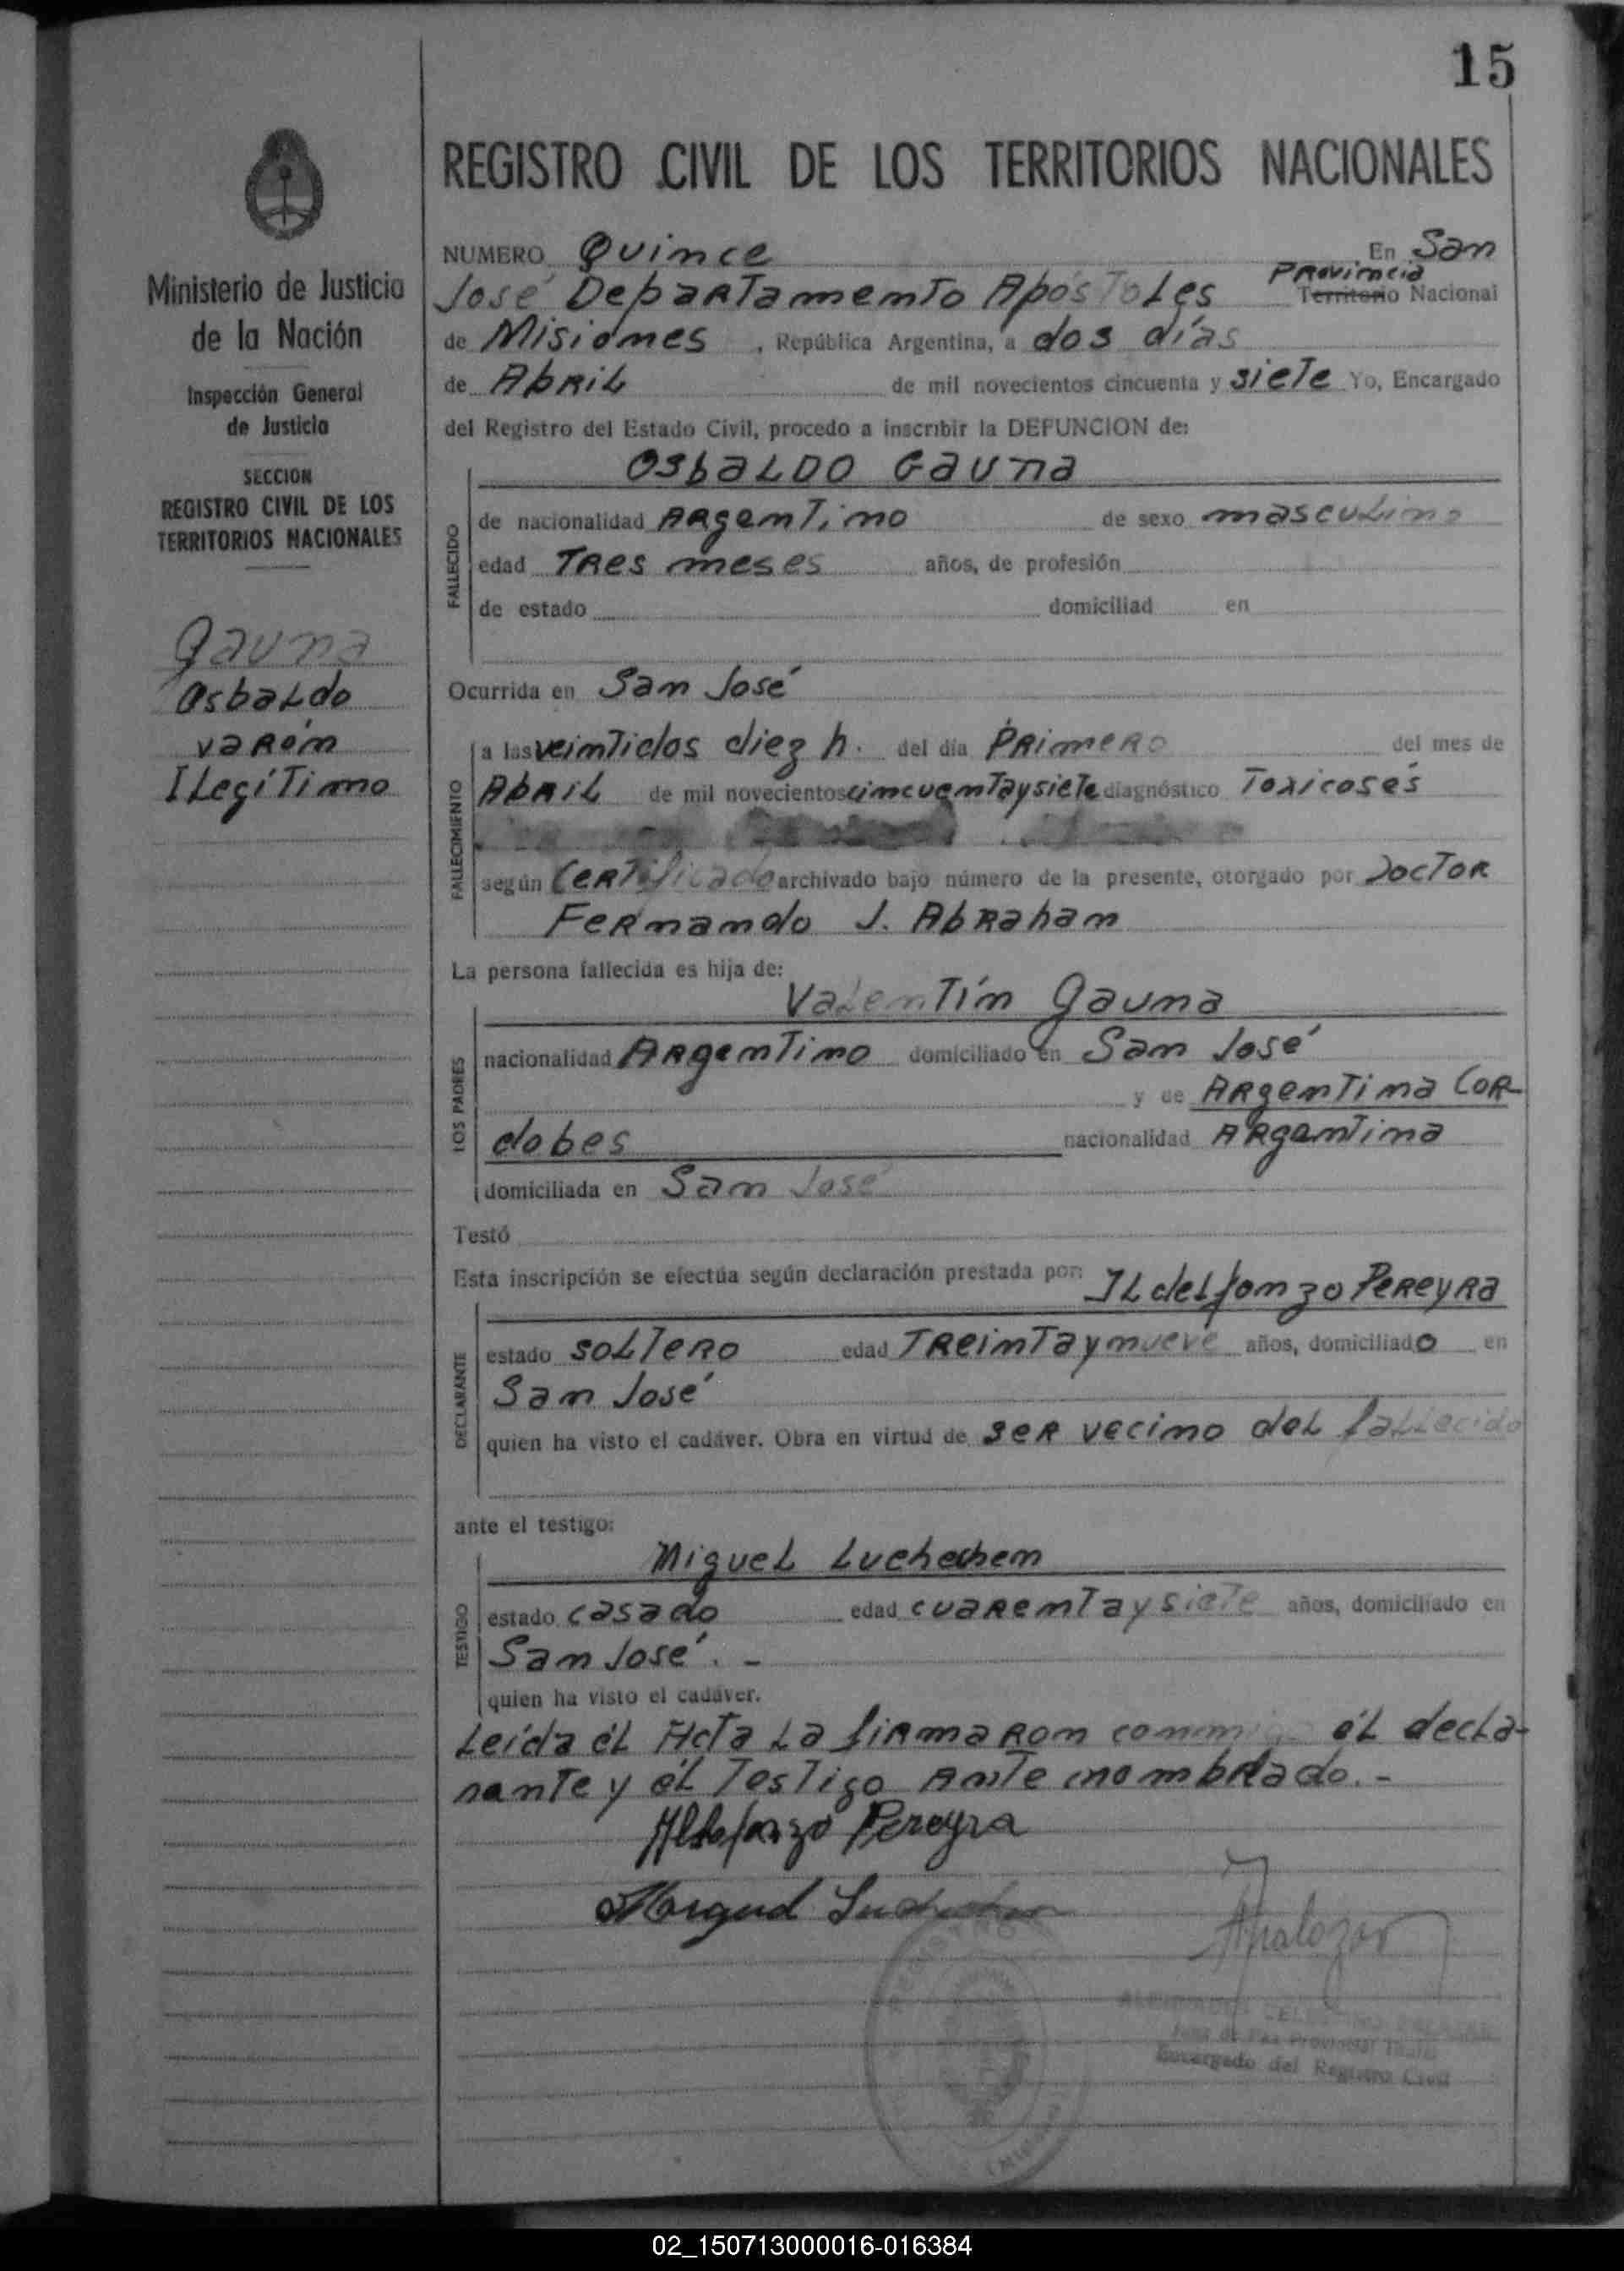 15
REGISTRO CIVIL DE LOS TERRITORIOS NACIONALES
Ministerio de Justicia
de la Nación
Inspección General
de Justicia
SECCION
REGISTRO CIVIL DE LOS
TERRITORIOS NACIONALES
Gauna
Osbaldo
varón
Ilegítimo
NUMERO Quince En San
José Departamento Apóstoles Provincia Territorio Nacional
de Misiones, República Argentina, a dos días
de Abril de mil novecientos cincuenta y siete Yo, Encargado
del Registro del Estado Civil, procedo a inscribir la DEFUNCION de:
FALLECIDO
Osbaldo Gauna
de nacionalidad Argentino de sexo masculino
edad Tres meses años, de profesión
de estado domiciliad en
Ocurrida en San José
FALLECIMIENTO
a las veintidos diez h. del día Primero del mes de
Abril de mil novecientos cincuentaysiete diagnóstico Toxicosés
según Certificado archivado bajo número de la presente, otorgado por Doctor
Fernando J. Abraham
La persona fallecida es hija de:
LOS PADRES
Valentín Gauna
nacionalidad Argentino domiciliado en San José
y de Argentina Cor-
dobes nacionalidad Argantina
domiciliada en San José
Testó
Esta inscripción se efectúa según declaración prestada por: Ildelfonzo Pereyra
DECLARANTE
estado soltero edad Treintaynueve años, domiciliado en
San José
quien ha visto el cadáver. Obra en virtud de ser vecino del fallecido
ante el testigo:
TESTIGO
Miguel Luchechen
estado casado edad cuarentaysiete años, domiciliado en
San José. -
quien ha visto el cadáver.
Leída él Acta la firmaron conmigo él decla-
rante y él Testigo Ante nombrado. -
Ildefonzo Pereyra
Miguel
Encargado del Registro Civil
02_150713000016-016384